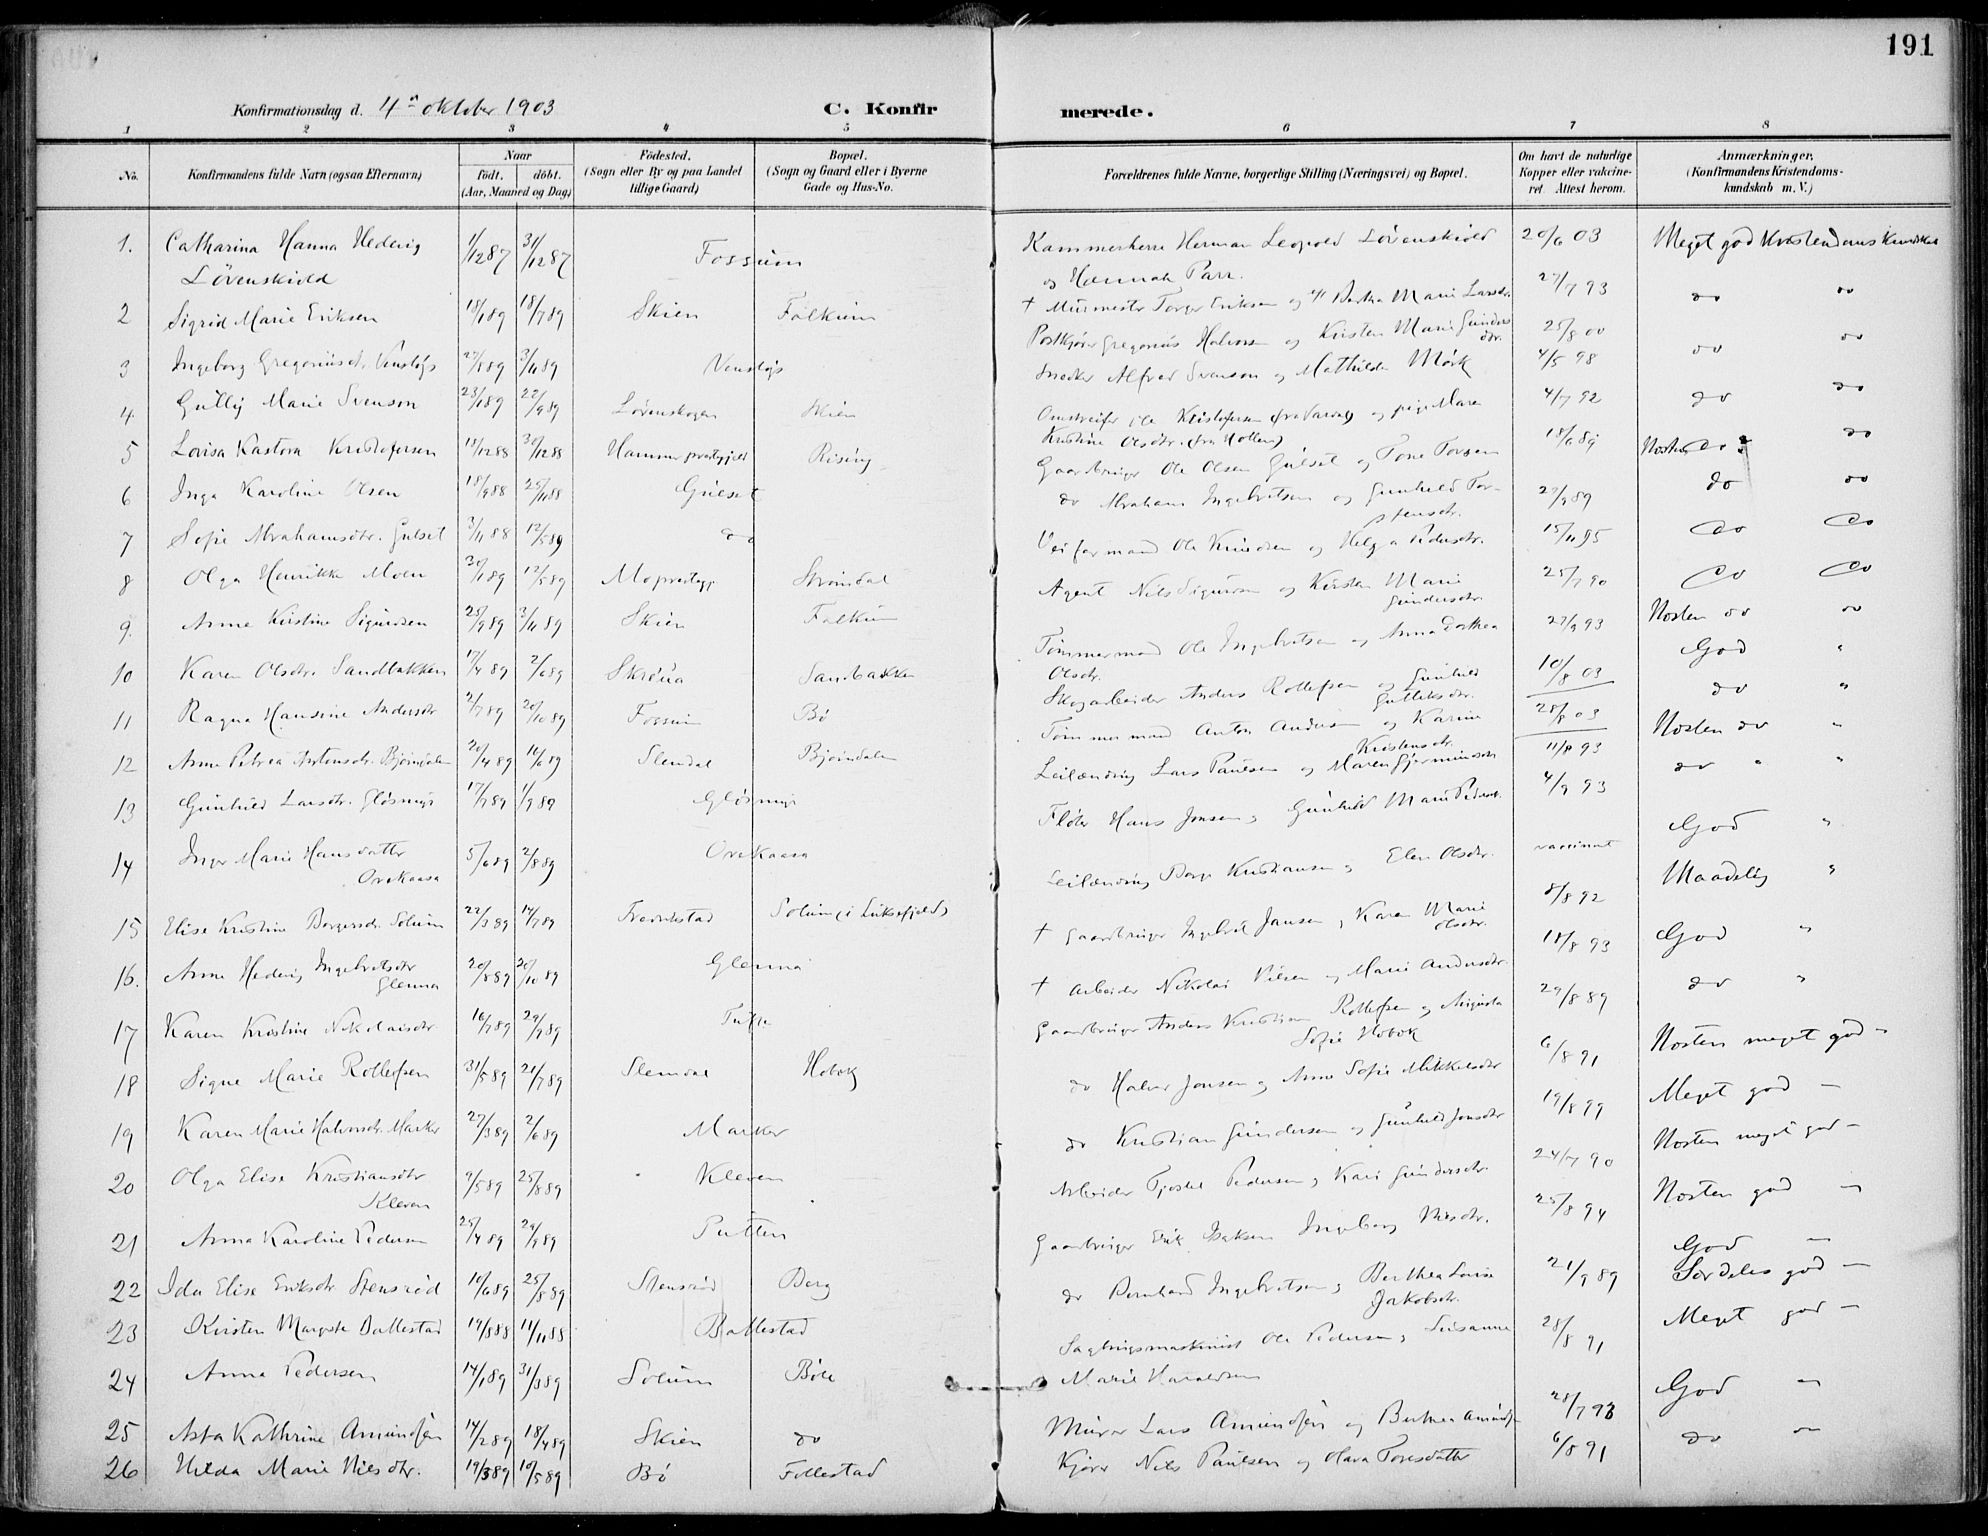 191
Konfirmationsdag d. 4de oktober 1903
C. Konfirmerede.
1 2 3 4 5 6 7 8
No.
Konfirmandens fulde Navn (ogsaa Efternavn)
Naar
födt. döbt.
(Aar, Maaned og Dag)
Födested.
(Sogn eller By og paa Landet
tillige Gaard)
Bopæl.
(Sogn og Gaard eller i Byerne
Gade og Hus-No.
Forældrenes fulde Navne, borgerlige Stilling (Næringsvei) og Bopæl.
Om havt de naturlige
Kopper eller vakcine-
ret. Attest herom.
Anmærkninger.
(Konfirmandens Kristendoms-
kundskab m. V.)
1. Catharina Hanna Hedevig 1/12 87 31/12 87 Fossum Kammerherre Herman Leopold Løvenskiold 20/6 03 Meget god Kristendomskundskab
Løvenskiold og Hannah Parr.
2 Sigrid Marie Eriksen 18/1 89 18/7 89 Skien Falkum † Murmester Torger Eriksen og Bertha Marie Larsdr. 27/7 93 do do
3 Ingeborg Gregoriusdr. Venstøp 27/8 89 3/11 89 Venstøp Postkjører Gregorius Halvorsen og Kirsten Marie Gunders 25/8 00 do do
dtr.
4. Gully Marie Svenson 23/1 89 22/9 89 Løvenskogen Skien Snedker Alfred Svenson og Mathilde Mørk 4/5 98 do do
5 Lovisa Kastora Kristofersen 18/12 88 30/12 88 Hammer prestegjeld Rising Omstreifer Ole Kristofersen og pige Maren 4/7 92 Nesten do do
Kristine Olsdtr. (fra Hollen)
6 Inga Karoline Olsen 18/9 88 25/11 88 Gulset Gaardbruger Ole Olsen Gulset og Tone 18/6 89 do do
7 Sofie Abrahamsdtr. Gulset 3/11 88 12/5 89 do do Abraham Ingebretsen og Gunhild Tor- 27/9 89 do do
stensdr.
8 Olga Henrikke Moen 30/1 89 12/5 89 Mo prestegj Strømdal Veiformand Ole Knudsen og Helga Pedersdtr. 15/11 95 do do
9. Anne Kirstine Sigurdsen 25/9 89 3/11 89 Skien Falkum Agent Nils Sigurdsen og Kirsten Marie 25/7 90 Nesten do do
Gundersdtr.
10 Karen Olsdtr. Sandbakken 17/4 89 2/6 89 Sandbakken Tømmermand Ole Ingebretsen og Anna Dorthea 27/9 93 God "
Olsdtr.
11 Ragna Hansine Andersdtr 2/7 89 20/10 89 Fossum Bø Skogarbeider Anders Rollefsen og Gunhild 10/8 03 do "
Gulliksdtr.
12 Anne Petrea Antonsdr. Bjørndalen 20/4 89 16/6 89 Slemdal Bjørndalen Tømmermand Anton Andersen og Karine 28/8 03 Nesten do "
Kristensdr.
13 Gunhild Larsdtr. Gløsmyr 17/7 89 1/9 89 Gløsmyr Leilænding Lars Paulsen og Maren Gjermundsdr 11/8 93 do " "
14 Inger Marie Hansdatter 5/6 89 2/8 89 Ovekaasa Fløter Hans Jonsen og Gunhild Marie Pedersd. 4/9 93 God "
Ovekaasa
15 Elise Kristine Borgersdr. Solum 22/3 89 14/7 89 Fredrikstad Solum (i Luksefjeld) Leilænding Borge Kristiansen og Elen Olsdtr. vaccineret Maadelig "
16. Anne Hedevig Ingebretsdtr 20/8 89 20/10 89 Glenna † Gaardbruger Ingebret Jansen og Karen Marie 8/8 92 God "
Glenna Olsdtr.
17 Karen Kristine Nikolaisdtr. 16/7 89 29/9 89 Tufte † Arbeider Nikolai Nilsen og Marie Andersdtr. 18/8 93 do "
18 Signe Marie Rollefsen 31/5 89 21/7 89 Slemdal Hobæk Gaardbruger Anders Kristian Rollefsen og Augusta 29/8 89 Nesten meget god -
Sofie Hobæk
19 Karen Marie Halvorsdr. Marker 27/3 89 2/6 89 Marker do Halvor Jonsen og Anne Sofie Mikkelsdtr 6/8 91 Meget god -
20 Olga Elise Kristiansdtr 9/5 89 25/8 89 Kleven do Kristian Gundersen og Gunhild Jonsdtr 19/8 99 Nesten meget god -
Kleven
21 Anna Karoline Pedersen 25/4 89 29/9 89 Putten Arbeider Tjostel Pedersen og Kari Gundersdtr. 24/7 90 Nesten god -
22 Ida Elise Eriksdtr Stensrød 16/6 89 25/8 89 Stensrød Berg Gaardbruger Erik Isaksen Ingeborg Nilsdtr. 25/8 94 God -
23 Kirsten Margrete Ballestad 19/8 88 11/11 88 Ballestad do Bernhard Ingebretsen og Berthea Lovise 21/9 89 Særdeles god -
Jakobsdtr.
24 Anna Pedersen 14/1 89 31/3 89 Solum Bøle Sagbrugsmaskinist Ole Pedersen og Susanne 28/8 91 Meget god -
Marie Haraldsen
25 Asta Kathrine Amundsen 14/2 89 18/4 89 Skien do Murer Lars Amundsen og Berthea Amunds- 28/7 93 God -
26 Hilda Marie Nilsdtr. 19/3 89 10/5 89 Bø Follestad Kjører Nils Paulsen og Olava Toresdatter 6/8 91 do -